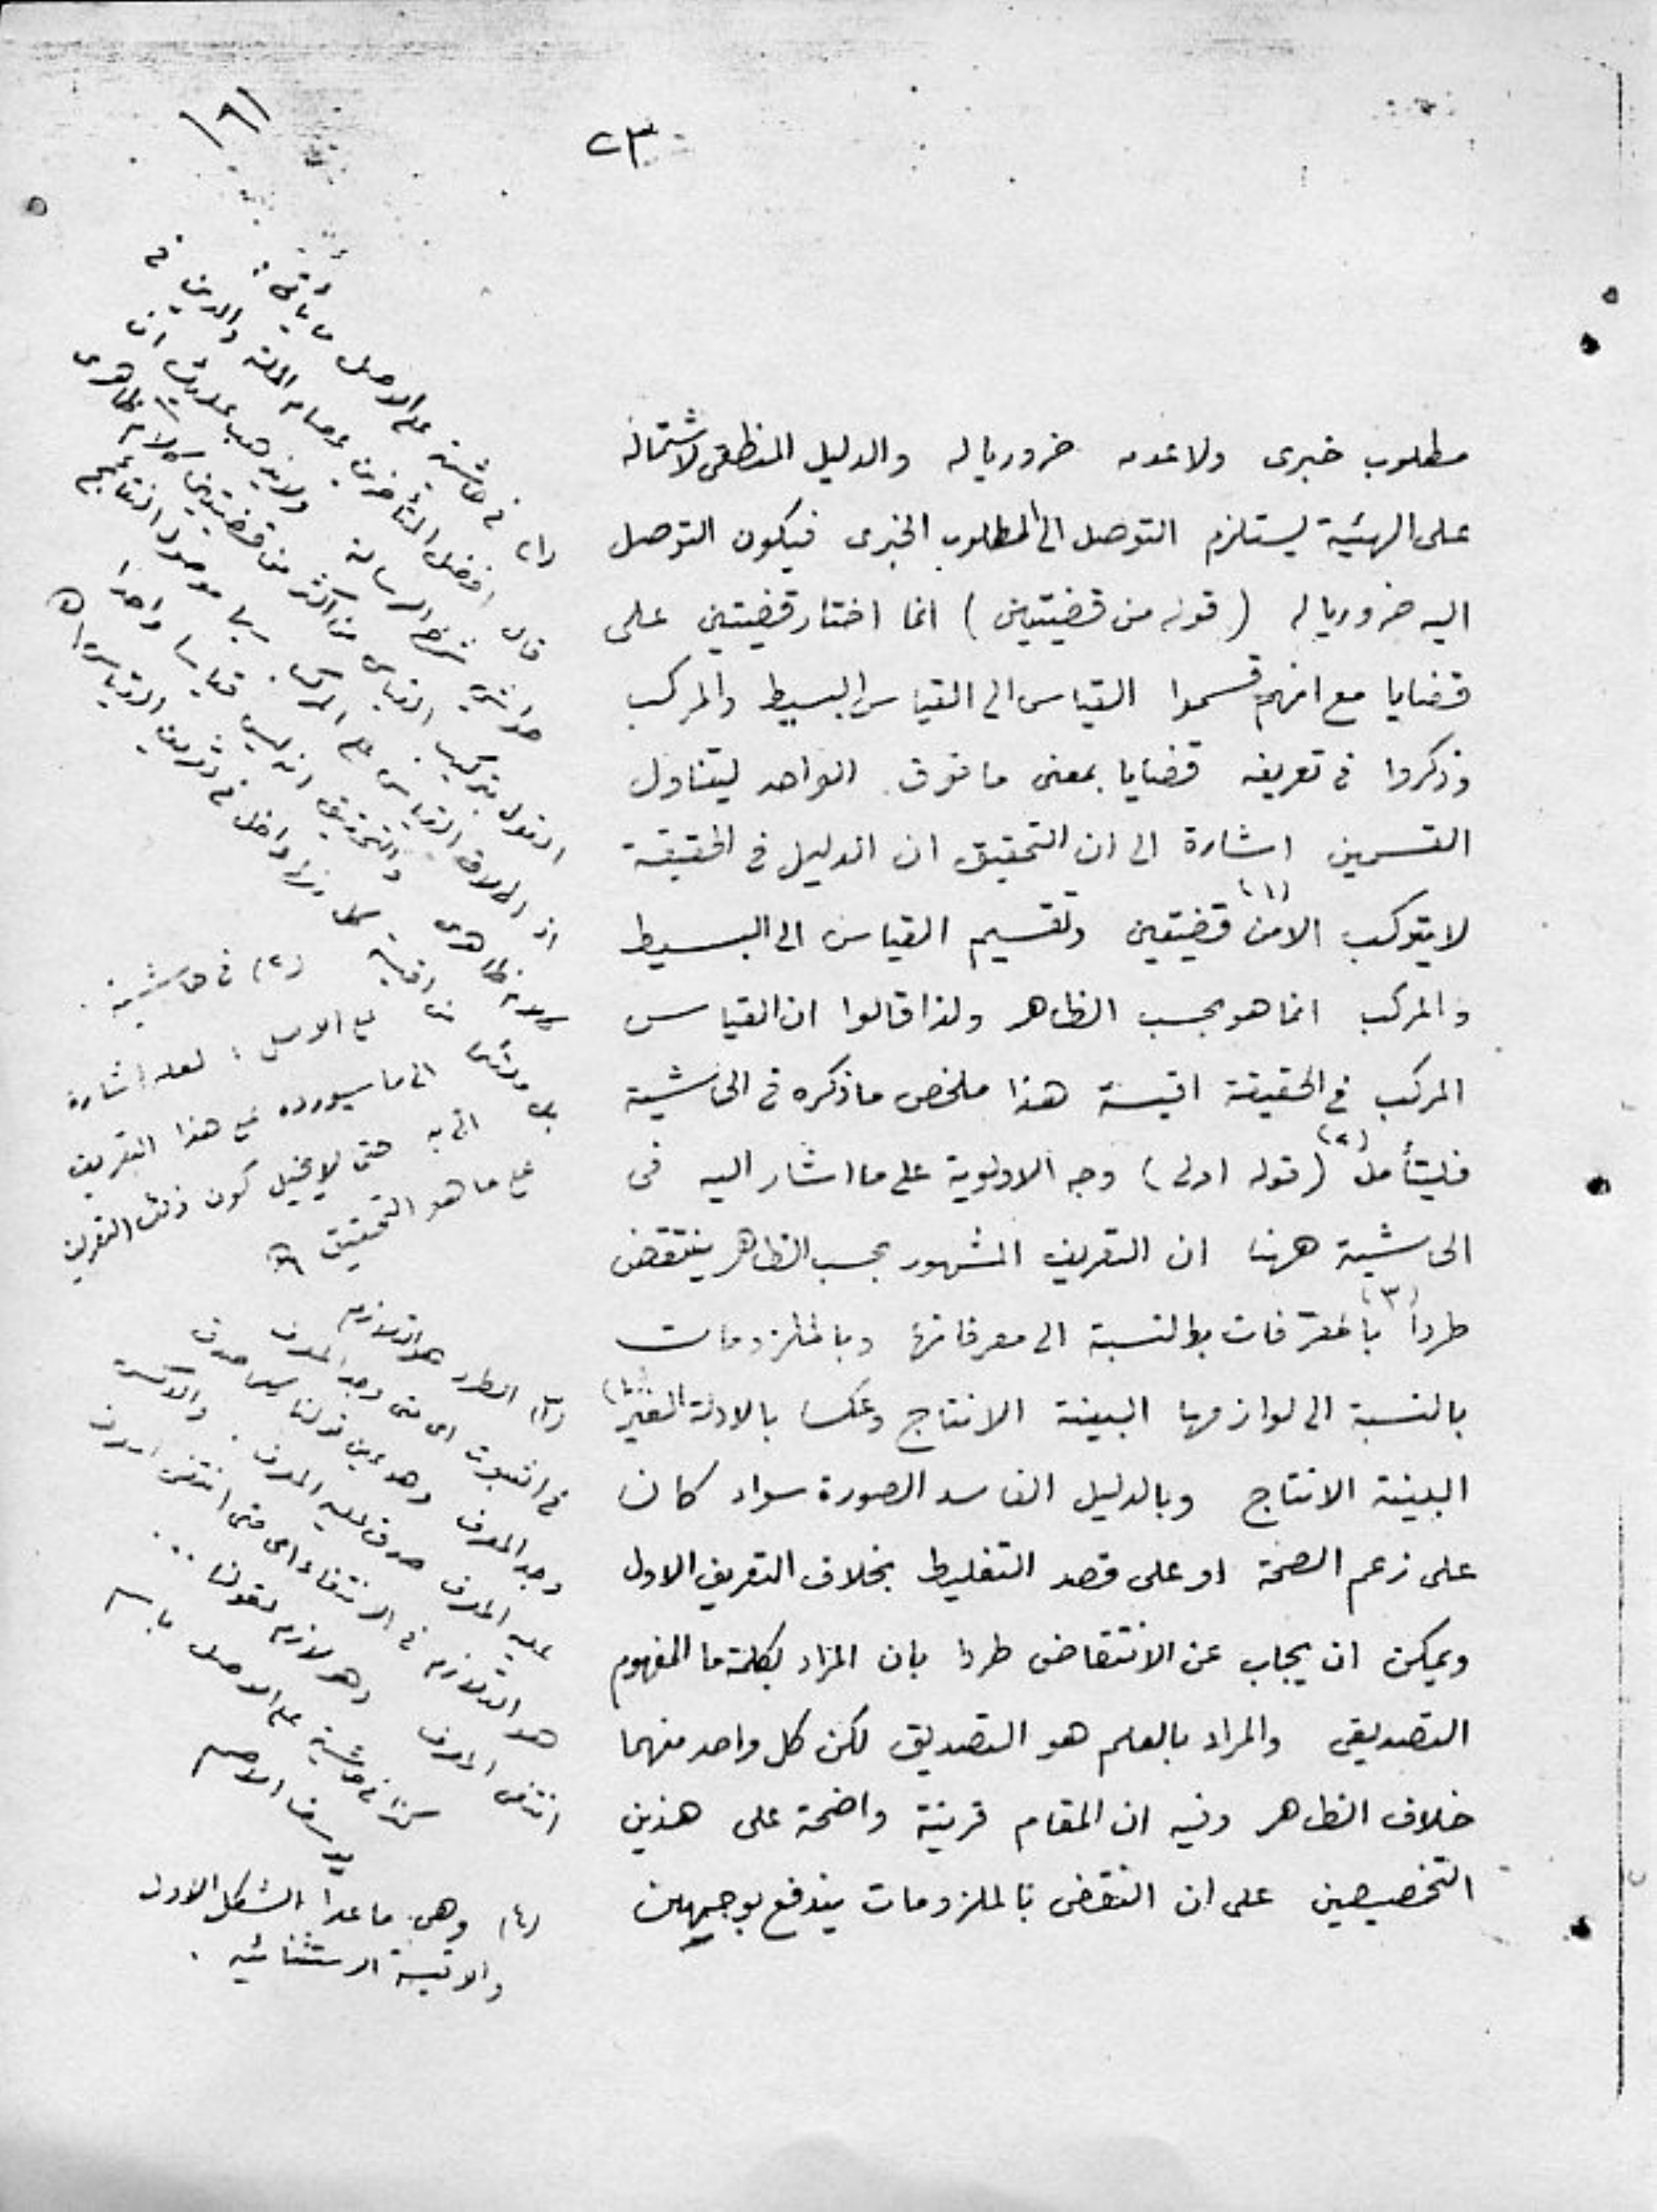 ٢٣
(١٩)
مطلوب خبرى ولا عدمه ضروريا له والدليل المنطقى لاشتماله
على الهيئية يستلزم التوصل الى المطلوب الخبرى فيكون التوصل
اليه ضروريا له (قوله من قضيتين) انما اختار قضيتين على
قضايا مع انهم قسموا القياس الى القياس البسيط والمركب
وذكروا فى تعريفه قضايا بمعنى ما فوق الواحد ليتناول
القسمين اشارة الى ان التحقيق ان الدليل فى الحقيقة
لا يتركب الا من (١) قضيتين وتقسيم القياس الى البسيط
والمركب انما هو بحسب الظاهر ولذا قالوا ان القياس
المركب فى الحقيقة اقيسة هذا ملخص ما ذكره فى الحاشية
فليتأمل (٢) (قوله اولى) وجه الاولوية على ما اشار اليه فى
الحاشية ههنا ان التعريف المشهور بحسب الظاهر ينتقض
طردا (٣) بالمعرفات بالنسبة الى معرفاتها وبالملزومات
بالنسبة الى لوازمها البينة الانتاج وعكسا بالادلة الغير (٤)
البينة الانتاج وبالدليل الفاسد الصورة سواء كان
على زعم الصحة او على قصد التغليط بخلاف التعريف الاول
ويمكن ان يجاب عن الانتقاض طردا بان المراد بكلمة ما المفهوم
التصديقى والمراد بالعلم هو التصديق لكن كل واحد منهما
خلاف الظاهر وفيه ان المقام قرينة واضحة على هذين
التخصيصين على ان النقض بالملزومات يندفع بوجهين
(١) فى حاشية على الاصل ما يأتى:
قال افضل المتأخرين عصام الملة والدين فى
حواشى شرح الرسالة ولا يذهب عليك ان
القول بتركيب القياس من اكثر من قضيتين كلام ظاهرى
اذ اطلاق القياس على المركب بها موصول النتائج
والتحقيق انه ليس قياسا واحدا
(٢) فى حاشية
على الاصل: لعله اشارة
الى ما سيورده على هذا التعريف
حتى لا يخيل كون ذلك التعريف
على ما هو التحقيق اهـ
(٣) الطرد هو التلازم
فى الثبوت اى متى وجد المعرف
وجد المعرف وهو عين قولنا كلما صدق
عليه المعرف صدق عليه المعرف. والعكس
هو التلازم فى الانتفاء اى متى انتفى المعرف
انتفى المعرف وهو لازم لقولنا ...
كذا فى حاشية على الاصل باسم
يوسف الاصم
(٤) وهى ما عدا الشكل الاول
والاقيسة الاستثنائية.